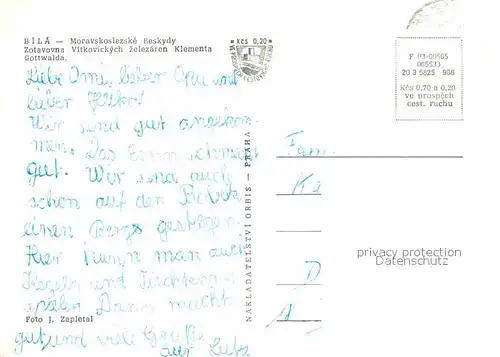 BÍLÁ — Moravskoslezské Beskydy
Zotavovna Vítkovických železáren Klementa
Gottwalda.
Kčs 0,20
VE PROSPĚCH CESTOVNÍHO RUCHU
F 03-00505
065533
20 3 5825 966
Kčs 0,70 a 0,20
ve prospěch
cest. ruchu
Liebe Omi, lieber Opa und
lieber
Wir sind gut angekom-
men. Das Essen schmeckt
gut. Wir sind auch
schon auf den
einen Bergs gestiegen.
Hier kann man auch
Kegeln und Tischtennis
spielen Dann macht
gut und viele Grüße
aur Lutz
Foto J. Zapletal
NAKLADATELSTVÍ ORBIS — PRAHA
Fam.
Ka
D
privacy protection
Datenschutz